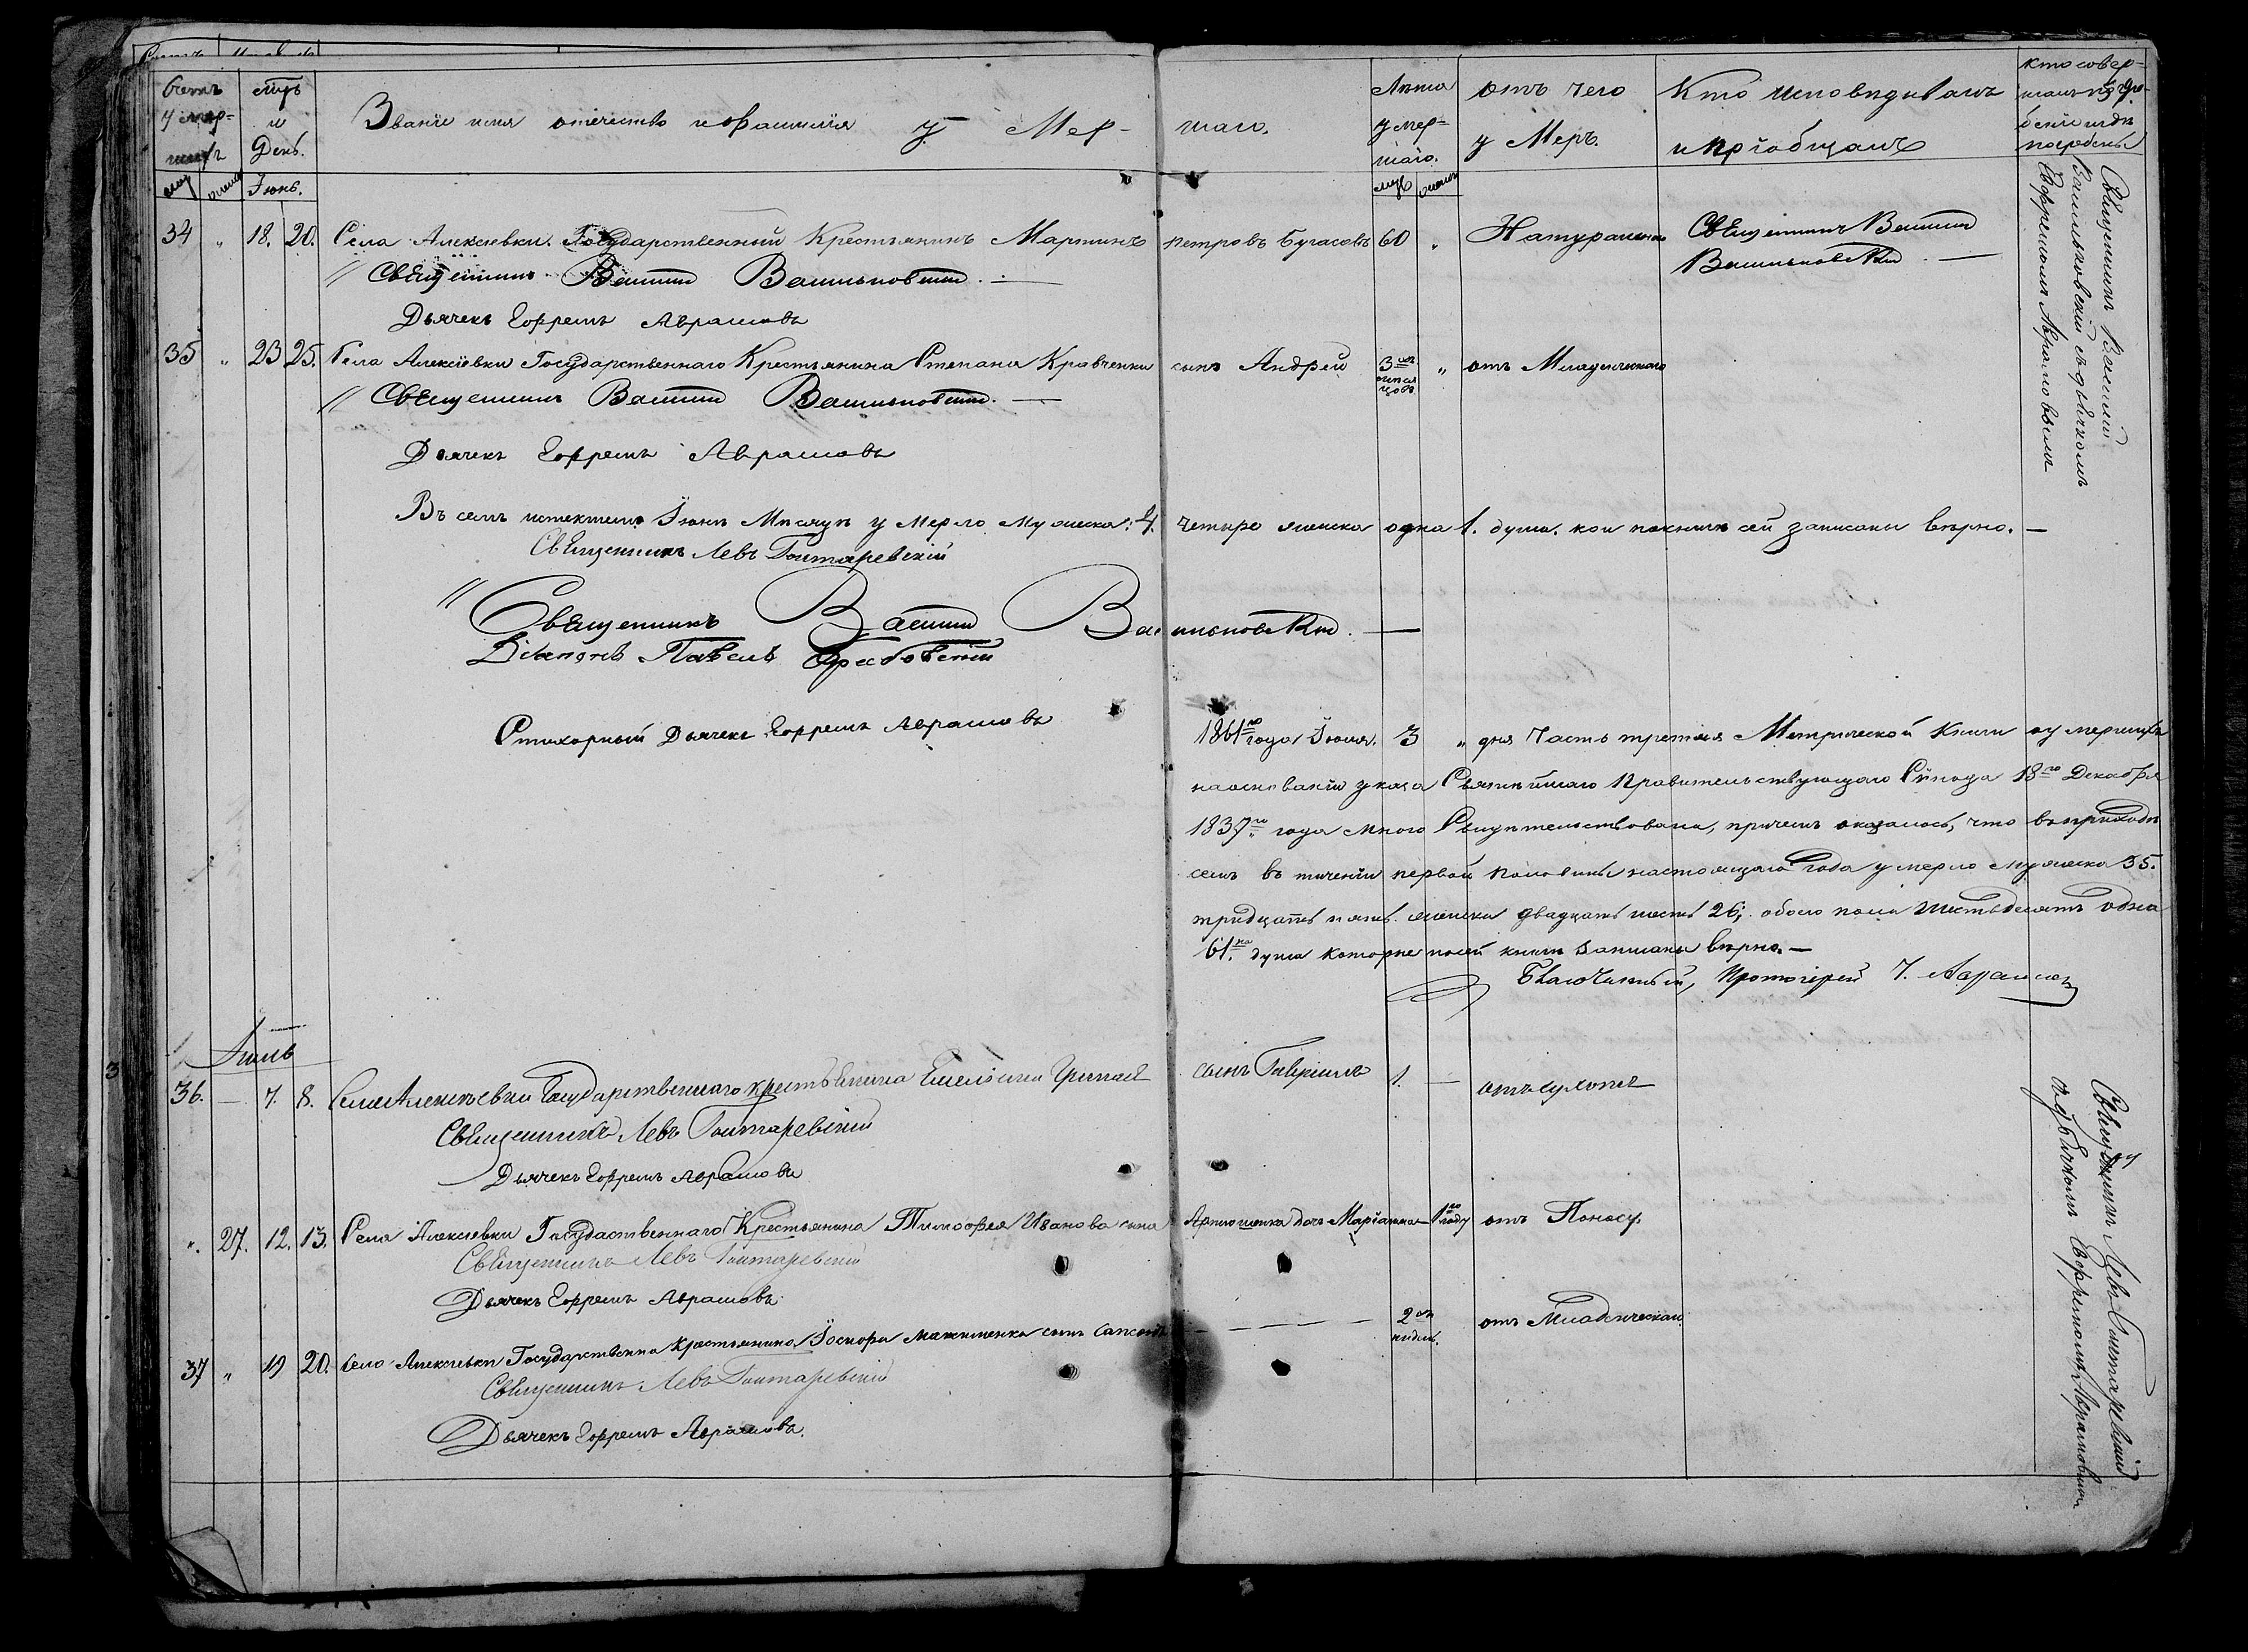 Счетъ умершихъ
муж. женск.
Мѣсяцъ и День.
Іюнь.
Званіе имя отечество и фамилія умершаго.
Лѣта умершаго.
муж. женск.
отъ чего умеръ.
Кто исповѣдывалъ и пріобщалъ
кто совершалъ погребеніе и гдѣ погребены
34 „ 18. 20. Села Алексѣевки Государственный Крестьянинъ Мартинъ Петровъ 60 „ Натурально Священникъ Василій
Священникъ Василій Васильковскій. — Васильковскій. —
Дьячекъ Ефремъ Аврамовъ
35 „ 23 25. Села Алексѣевки Государственнаго Крестьянина Степана Кравченка сынъ Андрей 3хъ мѣсяцовъ „ отъ Младенческаго
Священникъ Василій Васильковскій. —
Дьячекъ Ефремъ Аврамовъ
Священникъ Василій
Васильковскій съ дьячкомъ
Ефремомъ Аврамовымъ
Въ семъ истекшемъ Іюнѣ Мѣсяцѣ умерло мужеска: 4. четыре женска одна 1. душа. кои по книгѣ сей записаны вѣрно. —
Священникъ Левъ Гонтаревскій
Священникъ Василій Васильковскій. —
Діаконъ Павелъ Грабовскій
Стихарный Дьячекъ Ефремъ Аврамовъ
1861го года Іюля 3 „ дня Часть третія Метрической Книги о умершихъ
на основаніи указа Святѣйшаго Правительствующаго Сѵнода 18го Декабря
1837го года мною Свидѣтельствована, причемъ оказалось, что въ приходѣ
семъ въ теченіи первой половины настоящаго года умерло мужеска 35.
тридцать пять. женска двадцать шесть 26; обоего пола шестьдесятъ одна
61на душа которые по сей книгѣ записаны вѣрно. —
Благочинный, Протоіерей
Іюль
36. — 7. 8. Села Алексѣевки Государственнаго крестьянина Емеліяна сынъ Гавріилъ 1. — отъ сухотъ
Священникъ Левъ Гонтаревскій
Дьячекъ Ефремъ Аврамовъ
„. 27. 12. 13. Села Алексѣевки Государственнаго Крестьянина Тимофея Иванова сина Артюшенка дочь Маріанна — 1го году отъ Поносу.
Священникъ Левъ Гонтаревскій
Дьячекъ Ефремъ Аврамовъ.
37 „ 19 20. Села Алексѣевки Государственна Крестьянина сынъ — — — — 2хъ недѣль. отъ Младенческаго
Священникъ Левъ Гонтаревскій
Дьячекъ Ефремъ Аврамовъ.
Священникъ Левъ Гонтаревскій
съ дьячкомъ Ефремомъ Аврамовымъ